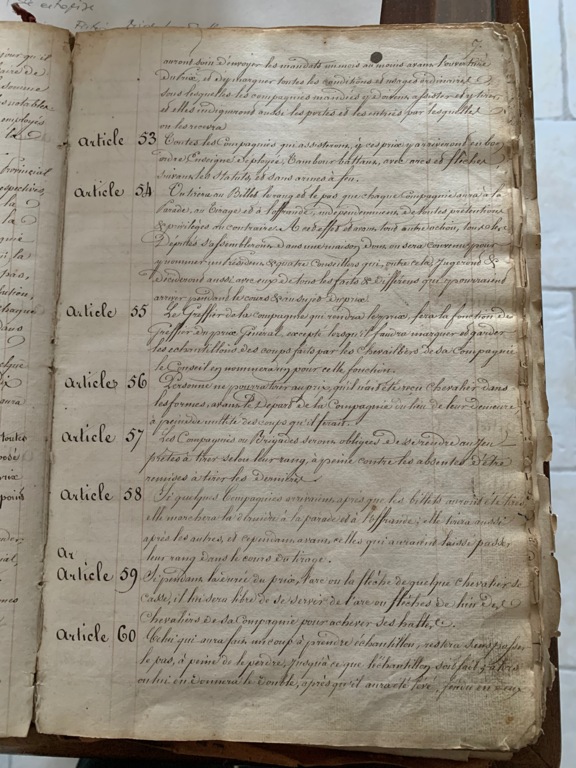 7
auront soin d'envoyer les mandats un mois au moins avant l'ouverture
du prix, et d'y marquer toutes les conditions et usages ordinaires
sous lesquelles les compagnies mandées y devront assister et y tirer,
et elles indiqueront aussi les portes et les entrées par lesquelles
on les recevra
Article 53 Toutes les Compagnies qui assisteront, à ces prix y arriveront en bon
ordre, Enseigne deployée, Tambour battans, avec arcs et flèches
suivant les Statuts, et sans armes à feu.
Article 54 On tirera au Billet le rang et le pas que chaque Compagnie aura à la
Parade, au Tirage et à l'offrande, independemment de toutes pretentions
& privilèges au contraire. A cet effet et avant tout autre action, tous les
Députés s'assembleront dans une maison dont on sera convenu pour
y nommer un Président & quatre Conseillers qui, outre cela, Jugeront &
Decideront aussi avec eux de tous les faits & Differens qui pourraient
arriver pendant le cours & au sujet du prix
Article 55 Le Greffier de la Compagnie qui rendra le prix, fera la fonction de
Greffier du prix Général, excepté lorsqu'il faudra marquer et garder
les echantillons des coups faits par les Chevaliers de sa Compagnie
le Conseil en nommera un pour cette fonction.
Article 56 Personne ne pourra tirer au prix, qu'il n'ait été reçu Chevalier dans
les formes, avant le Départ de la Compagnie du lieu de leur demeure
à peine de nullité des coups qu'il ferait.
Article 57 Les Compagnies ou Brigades seront obligées de se rendre au Jeu
prêtes à tirer selon leur rang, à peine contre les absentes d'être
remises à tirer les Dernières
Article 58 Si quelques Compagnies arrivaient après que les billets auront été tirés
elle marchera la dernière à la parade et à l'offrande; elle tirera aussi
après les autres, et cependant avant celles qui auraient laissé passer
Ar
leur rang dans le cours du tirage.
Article 59 Si pendant la durée du prix, l'arc ou la flèche de quelque chevalier se
casse, il lui sera libre de se servir de l'arc ou flèches de l'un des
Chevaliers de sa Compagnie pour achever ses
Article 60 Celui qui aura fait un coup à prendre échantillon, restera sans passer
le pas, à peine de le perdre, Jusqu'à ce que l'échantillon soit fait
ou lui en donnera le double, après qu'il aura été